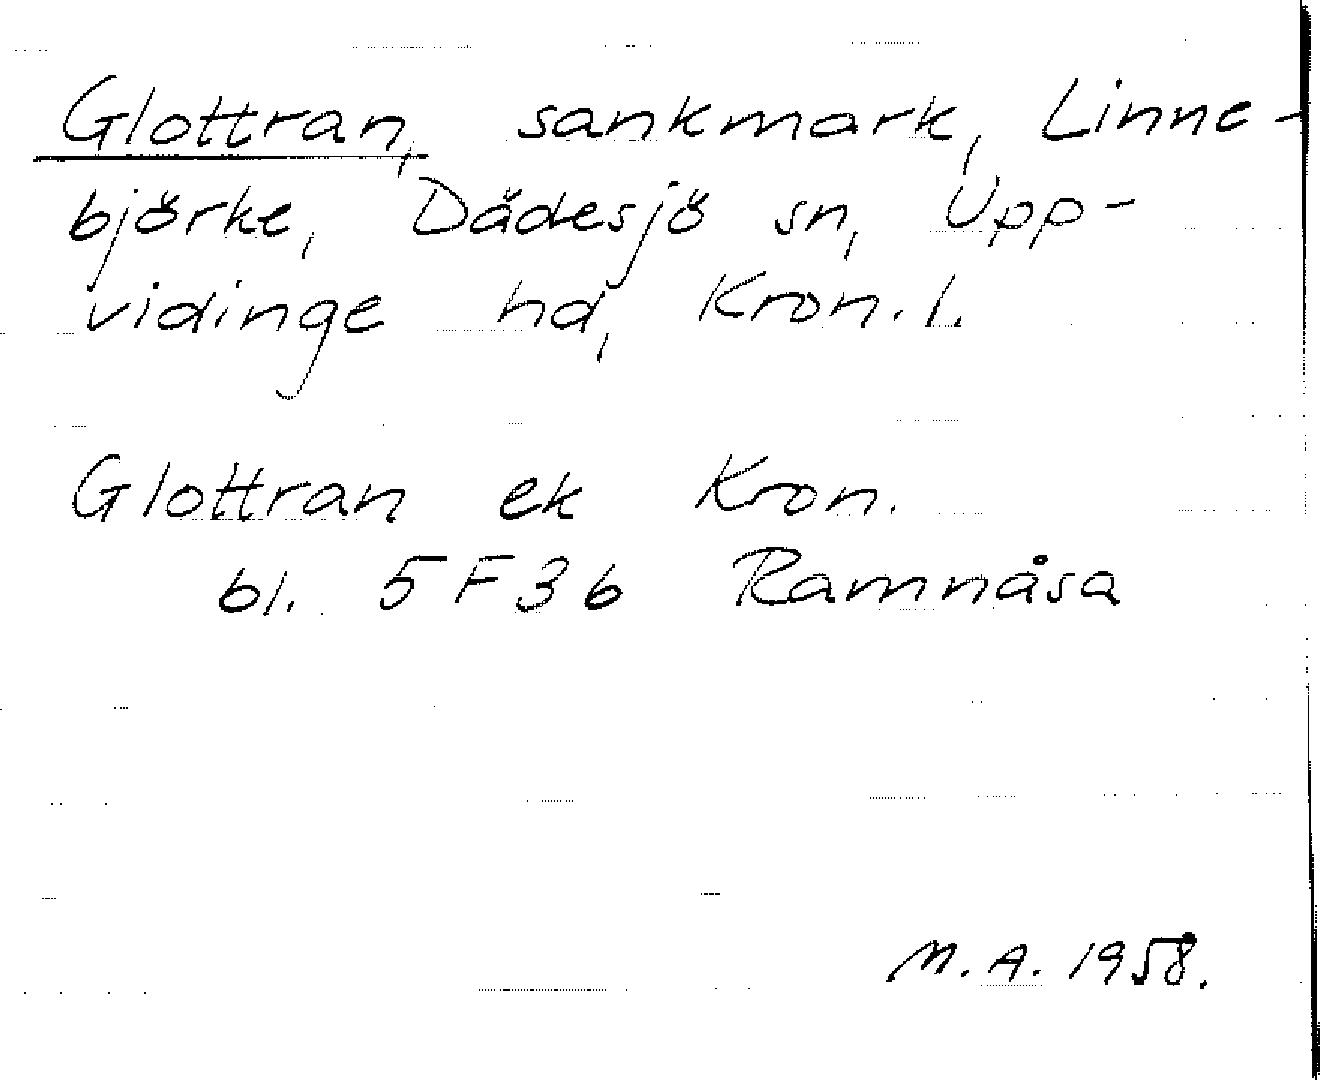 Glottran, sankmark, Linne-
björke, Dädesjö sn, Upp-
vidinge hd, Kron.l.
Glottran ek Kron.
bl. 5F3b Ramnåsa
M.A. 1958.